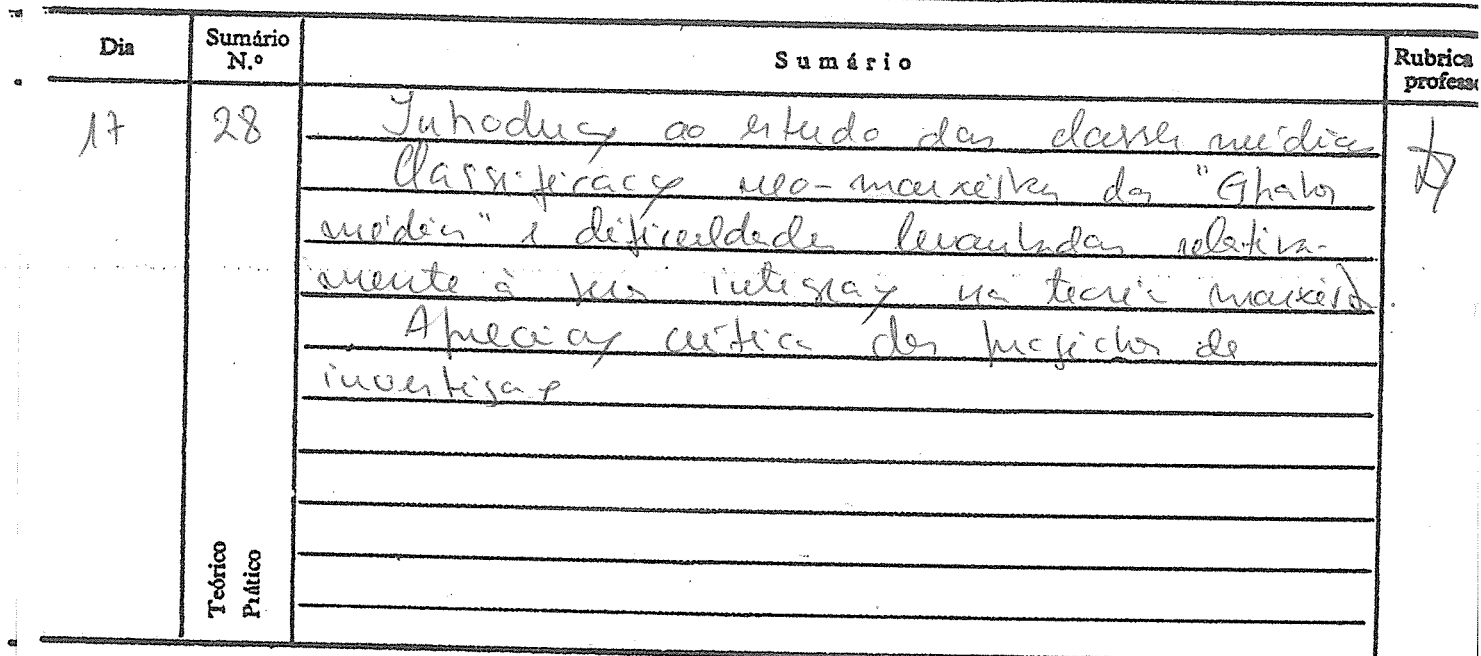 Dia
Sumário N.º
Sumário
Rubrica
professo
17
28
Introdução ao estudo das classes médias
Classificação neo-marxista das "Estratos
médios" e dificuldades levantadas relativa-
mente à sua integração na teoria marxista.
Apreciação crítica dos projectos de
investigação
Teórico
Prático